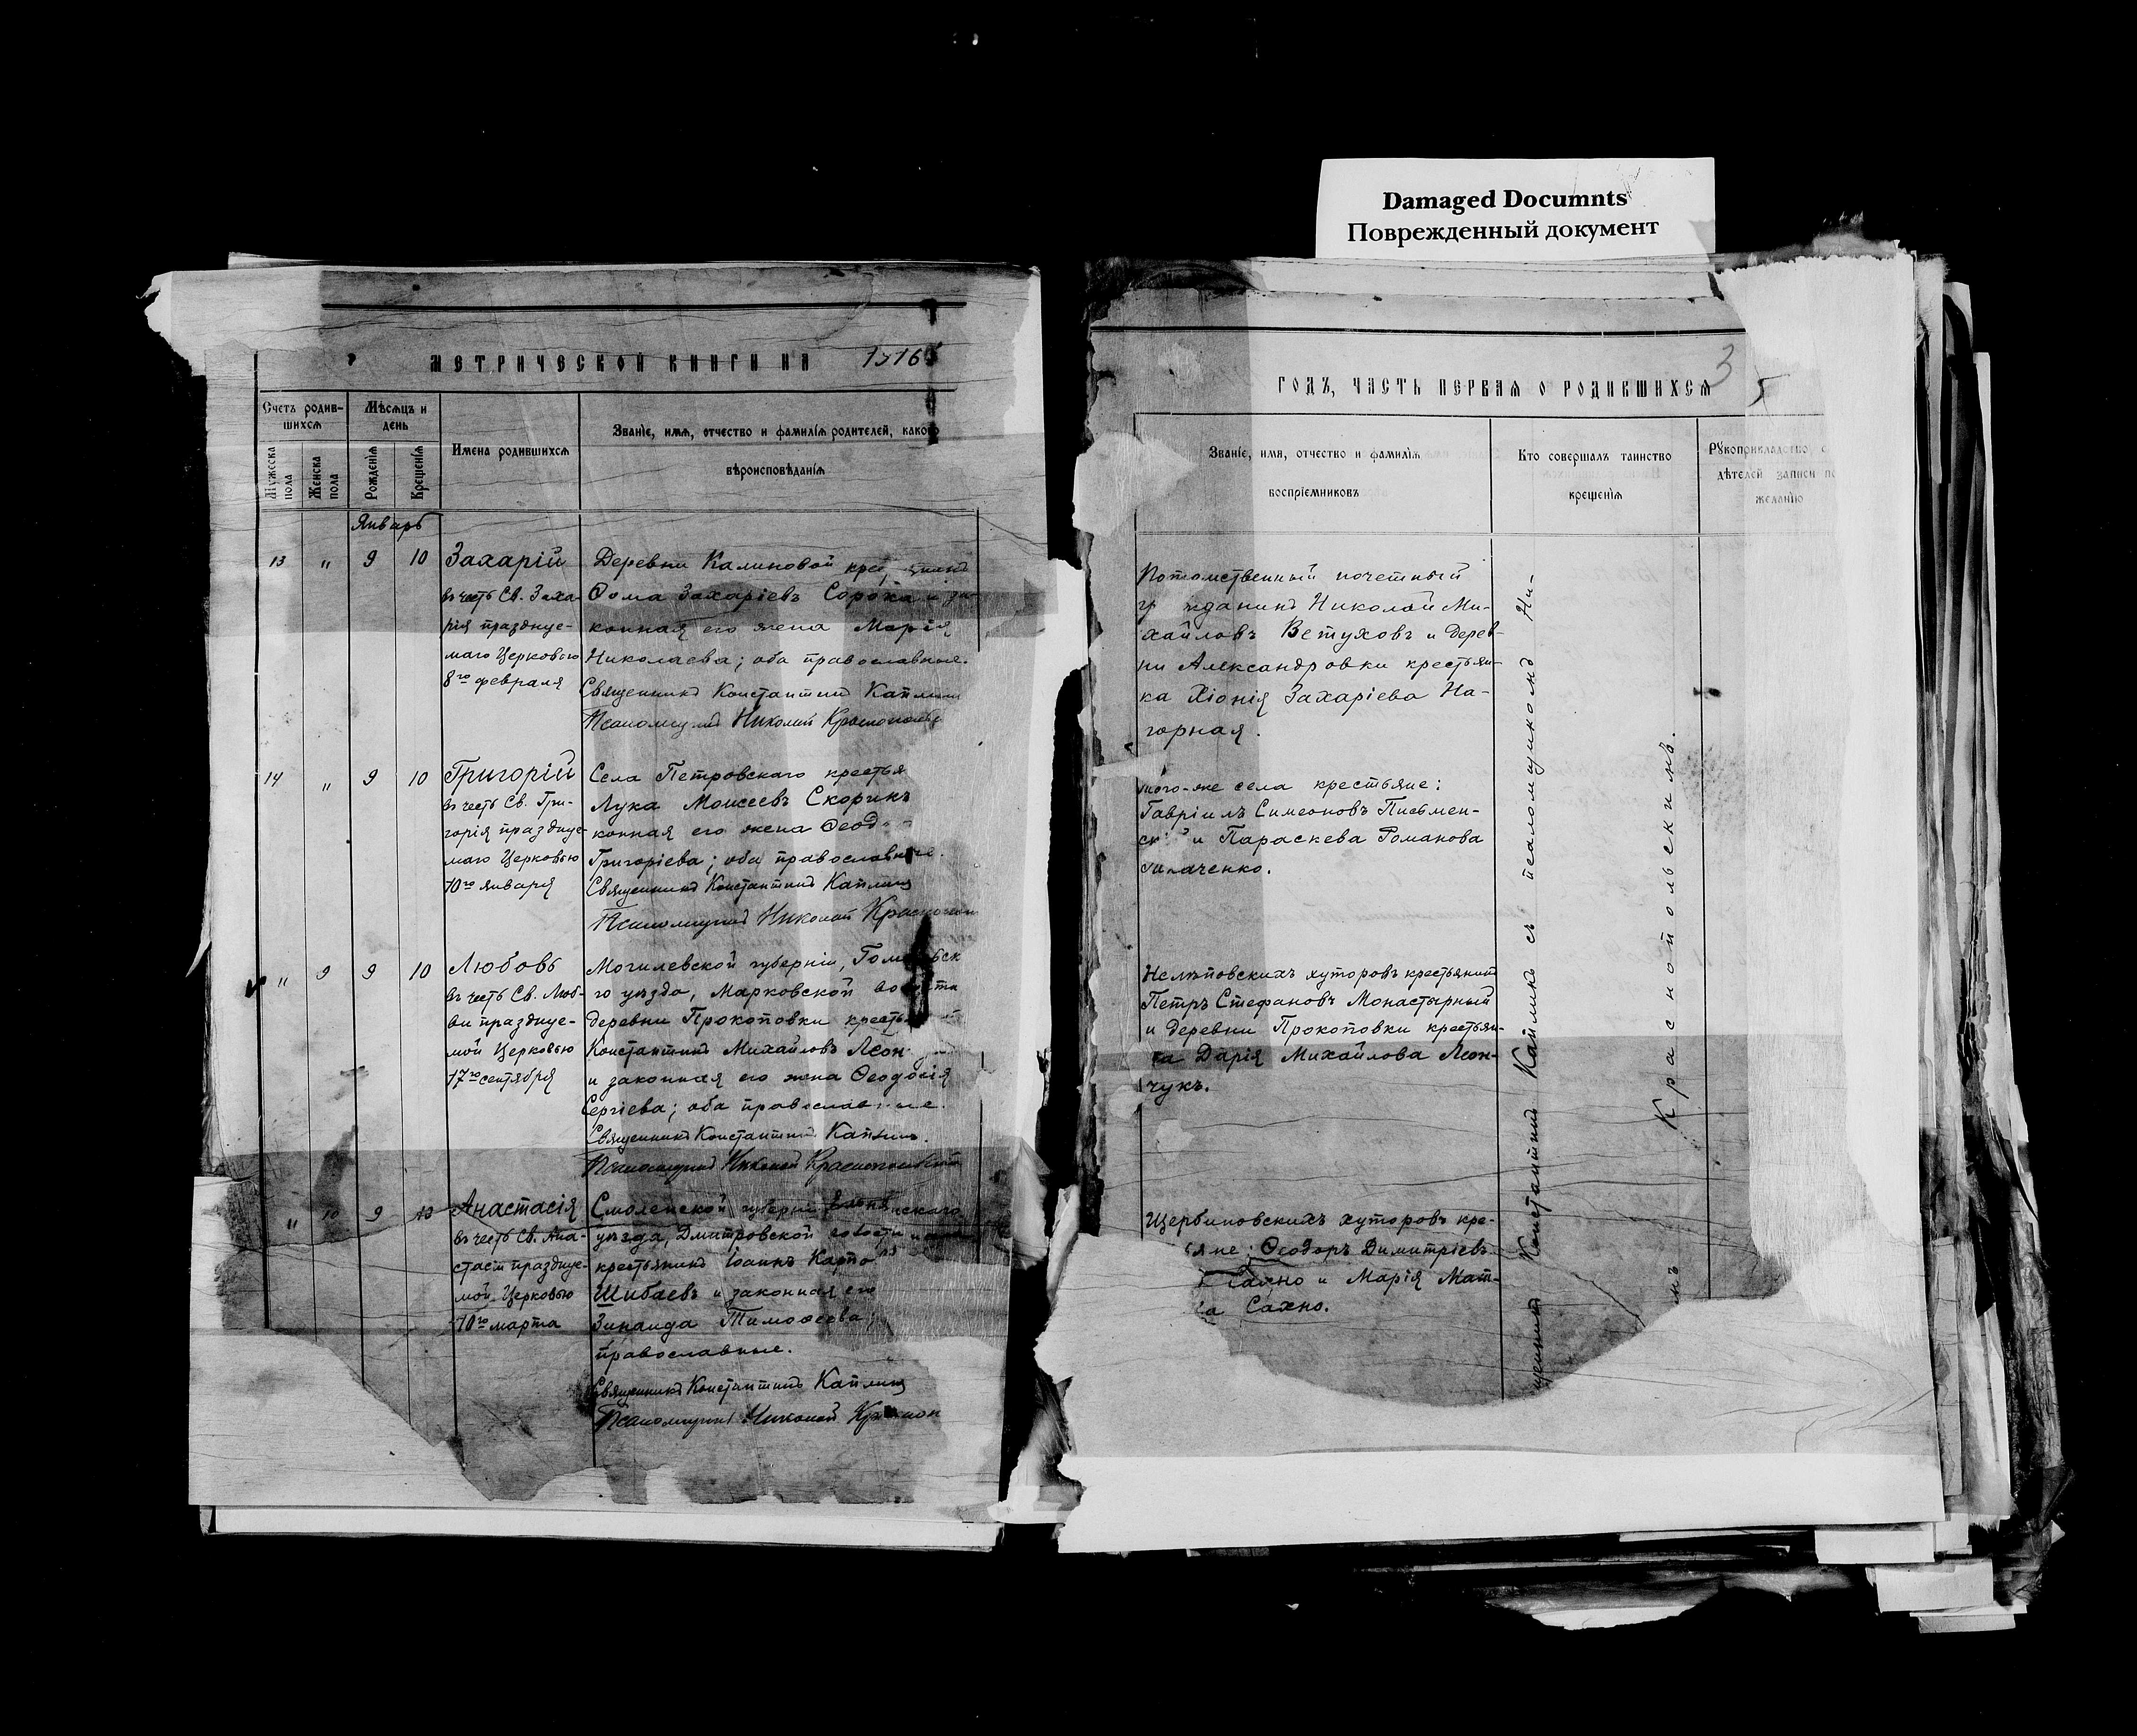 Damaged Documnts
Поврежденный документ
МЕТРИЧЕСКОЙ КНИГИ НА 1916
Счетъ родив-
шихся
Мѣсяцъ и
день
Мужеска
пола
Женска
пола
Рожденія
Крещенія
Имена родившихся
Званіе, имя, отчество и фамилія родителей, какого
вѣроисповѣданія
Январь
13 " 9 10 Захарій
въ честь Св. Заха-
рія праздуе-
маго Церковью
8го февраля
Деревни Калиновой
Ѳома Захаріевъ Сорока и за-
конная его жена Марія
Николаева; оба православные.
Священникъ Константинъ
Псаломщикъ Николай
14 " 9 10 Григорій
въ честь Св. Гри-
горія праздуе-
маго Церковью
10го января
Села Петровскаго крестья
Лука Моисеевъ Скорикъ
конная его жена Ѳеод
Григоріева; оба православные.
Священникъ Константинъ
Псаломщикъ Николай
" 9 9 10 Любовь
въ честь Св. Люб-
ви праздуе-
мой Церковью
17го сентября
Могилевской губерніи,
го уѣзда, Марковской
деревни Прокоповки
Константинъ Михайловъ Леон
и законная его жена Ѳеодосія
Сергіева; оба православные.
Священникъ Константинъ
Псаломщикъ Николай
" 10 9 10 Анастасія
въ честь Св. Ана-
стасіи праздуе-
мой Церковью
10го марта
Смоленской губерніи
уѣзда, Дмитровской волости
крестьянинъ Іоаннъ Карпо
Шибаевъ и законная его
Зинаида Тимоѳеева;
православные.
Священникъ Константинъ
Псаломщикъ Николай
ГОДЪ, ЧАСТЬ ПЕРВАЯ О РОДИВШИХСЯ
3 5
Званіе, имя, отчество и фамилія
воспріемниковъ
Кто совершалъ таинство
крещенія
Рукоприкладство
дѣтелей записи по
желанію
Потомственный почетный
гр жданинъ Николай Ми-
хайловъ Ветуховъ и дерев-
ни Александровки крестьян-
ка Хіонія Захаріева На-
горная.
того-же села крестьяне:
Гавріилъ Симеоновъ Письмен-
и Параскева Романова
Нелѣповскихъ хуторовъ крестьянинъ
Петръ Стефановъ Монастырный
и деревни Прокоповки крестьян-
ка Дарія Михайлова Леон-
чукъ.
Щербиновскихъ хуторовъ кре-
яне: Ѳеодоръ Димитріевъ
Сахно и Марія Мат-
ва Сахно.
щенникъ Константинъ Каплинъ съ псаломщикомъ Ни-
мъ Краснопольскимъ.